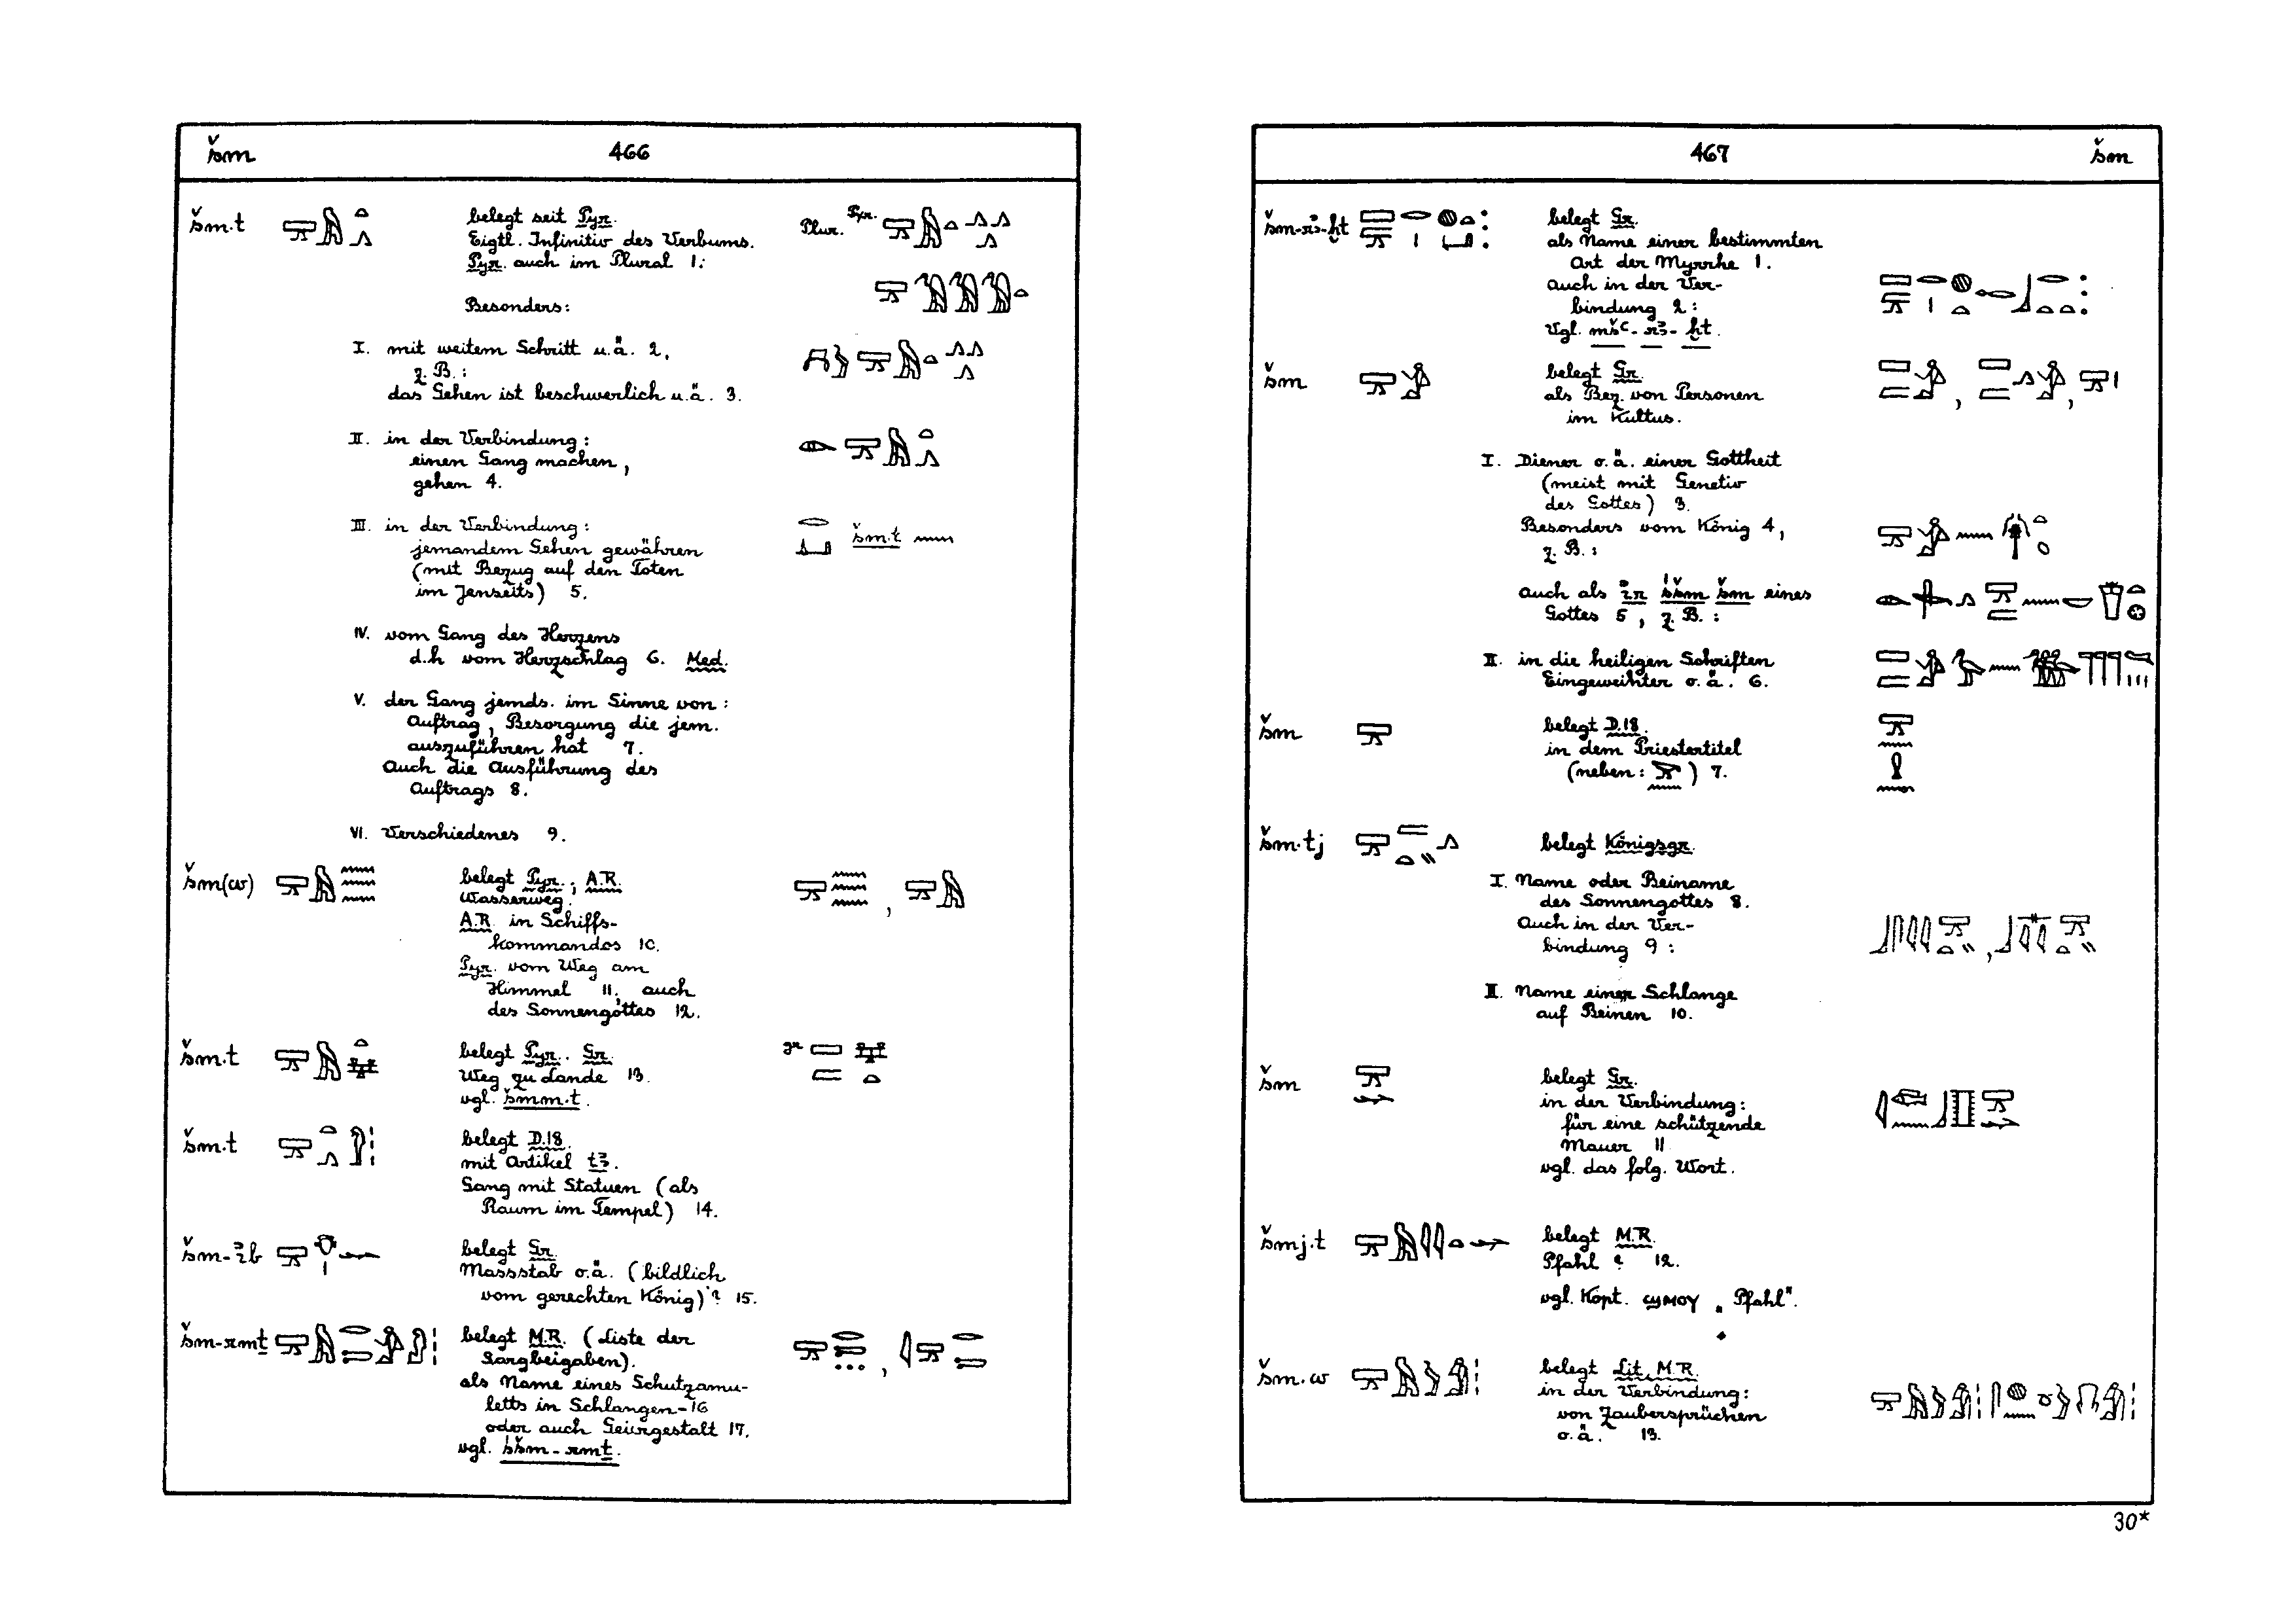 šm 466
šm.t belegt seit Pyr.
Eigtl. Infinitiv des Verbums. Plur. Pyr.
Pyr. auch im Plural 1:
Besonders:
I. mit weitem Schritt u.ä. 2,
z.B.:
das Gehen ist beschwerlich u.ä. 3.
II. in der Verbindung:
einen Gang machen,
gehen 4.
III. in der Verbindung: šm.t
jemandem Gehen gewähren
(mit Bezug auf den Toten
im Jenseits) 5.
IV. vom Gang des Herzens
d.h vom Herzschlag 6. Med.
V. der Gang jemds. im Sinne von:
Auftrag, Besorgung die jem.
auszuführen hat 7.
Auch die Ausführung des
Auftrags 8.
VI. Verschiedenes 9.
šm(w) belegt Pyr.; A.R.
Wasserweg.
A.R. in Schiffs-
kommandos 10.
Pyr. vom Weg am
Himmel 11, auch
des Sonnengottes 12.
šm.t belegt Pyr. Gr. Gr
Weg zu Lande 13.
vgl. šmm.t.
šm.t belegt D.18.
mit Artikel tꜣ.
Gang mit Statuen (als
Raum im Tempel) 14.
šm-ib belegt Gr.
Massstab o.ä. (bildlich
vom gerechten König)? 15.
šm-rmṯ belegt M.R. (Liste der
Sargbeigaben).
als Name eines Schutzamu-
letts in Schlangen-16
oder auch Geiergestalt 17.
vgl. śšm-rmṯ.
467 šm
šm-rꜣ-ẖt belegt Gr.
als Name einer bestimmten
Art der Myrrhe 1.
auch in der Ver-
bindung 2:
Vgl. mšꜥ-rꜣ-ẖt.
šm belegt Gr.
als Bez. von Personen
im Kultus.
I. Diener o.ä. einer Gottheit
(meist mit Genetiv
des Gottes) 3.
Besonders vom König 4,
z.B.:
auch als ir śšm šm eines
Gottes 5, z.B.:
II. in die heiligen Schriften
Eingeweihter o.ä. 6.
šm belegt D.18.
in dem Priestertitel
(neben: ) 7.
šm.tj belegt Königsgr.
I. Name oder Beiname
des Sonnengottes 8.
Auch in der Ver-
bindung 9:
II. Name einer Schlange
auf Beinen 10.
šm belegt Gr.
in der Verbindung:
für eine schützende
Mauer 11
vgl. das folg. Wort.
šmj.t belegt M.R.
Pfahl ? 12.
vgl. Kopt. ϣⲙⲟⲩ „Pfahl".
šm.w belegt Lit. M.R.
in der Verbindung:
von Zaubersprüchen
o.ä. 13.
30*